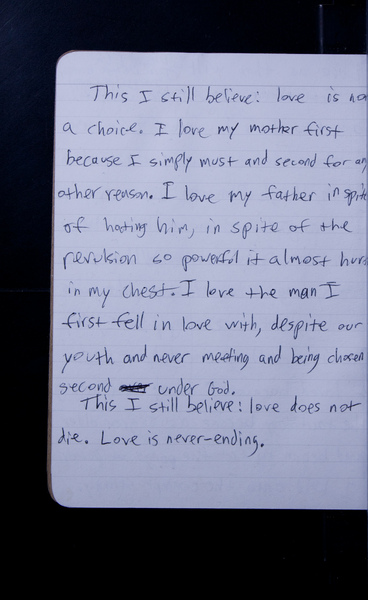 This I still believe: love is no
a choice. I love my mother first
because I simply must and second for an
other reason. I love my father in spite
of hating him, in spite of the
revulsion so powerful it almost hur
in my chest. I love the man I
first fell in love with, despite our
youth and never meeting and being chosen
second under God.
This I still believe: love does not
die. Love is never-ending.